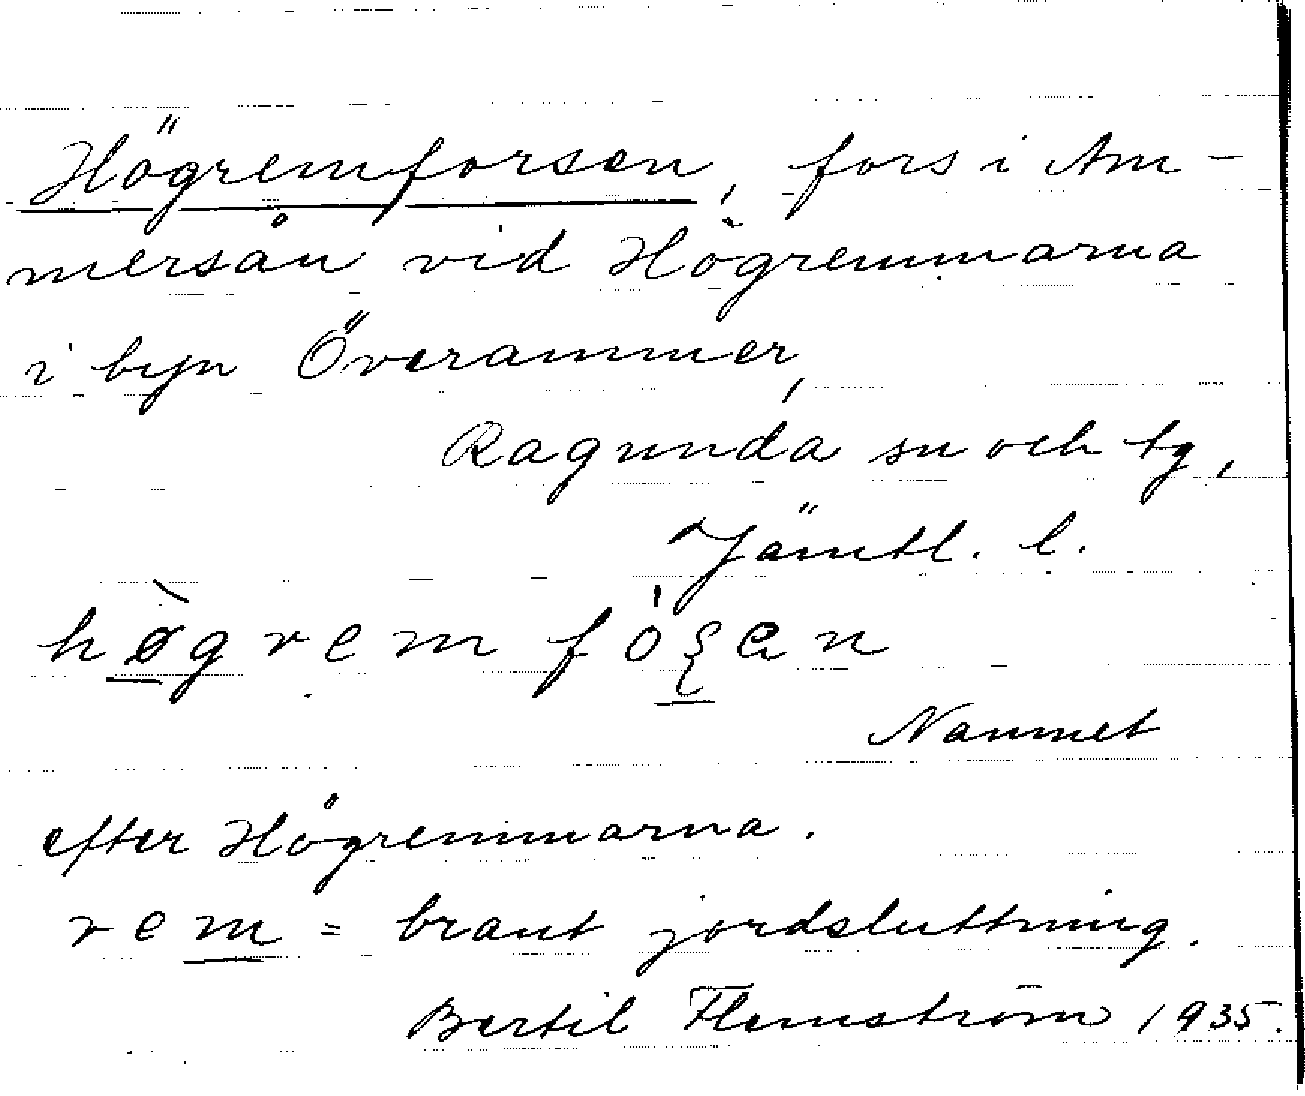 Högremforsen, fors i Am-
mersån vid Högremmarna
i byn Överammer,
Ragunda sn och tg,
Jämtl. l.
hø̀grem fóʂen
Namnet
efter Högremmarna.
rem = brant jordsluttning.
Bertil Flemström 1935.